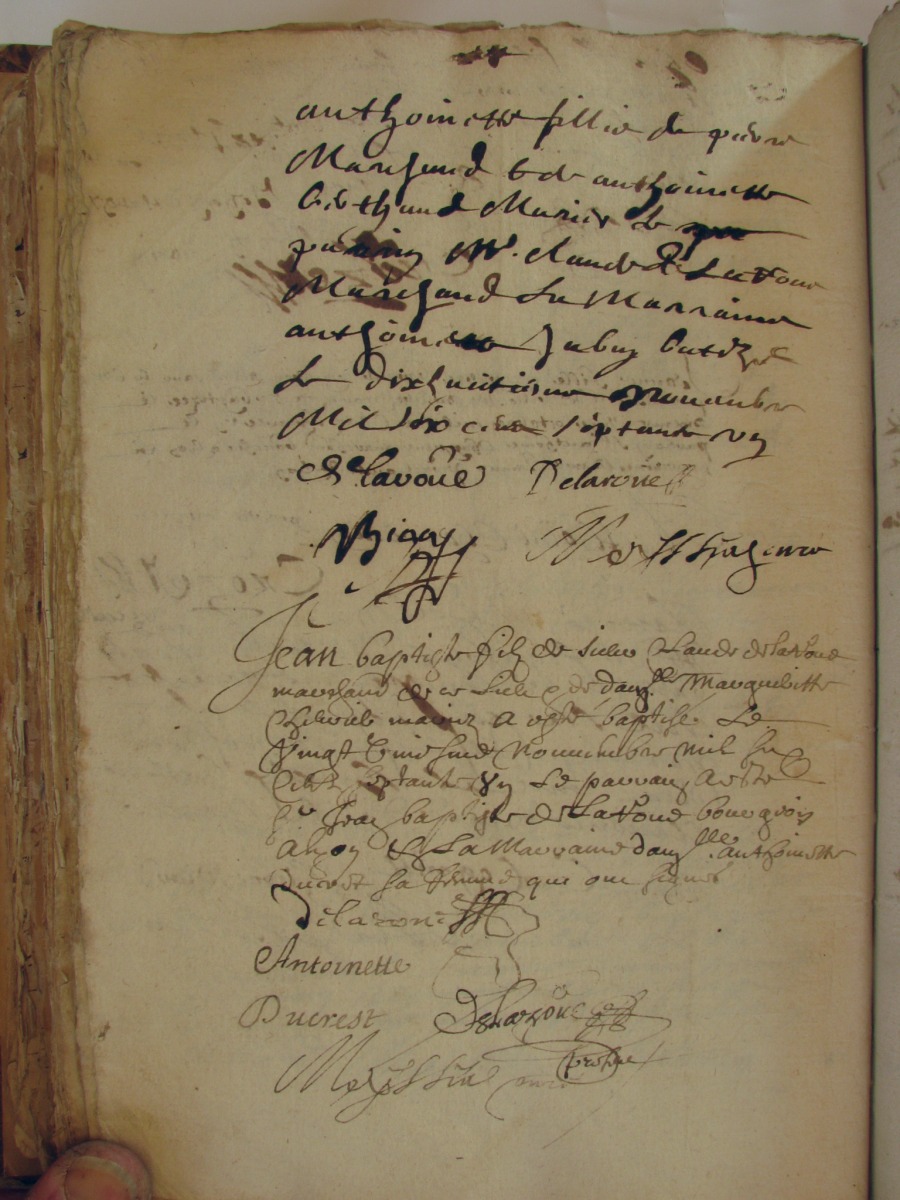 anthoinette fillie de pierre
Marchand & de anthoinette
berthaud Mariés Le
parrin Mr. claude De La roue
Marchand La Marraine
anthoinette batizé
Le dixhuitiesme Novembre
Mil Six cent septante un
C Delaroüe Delaroüe
Jean baptiste filz de sieur Claude de la Roue
marchand de ce Lieu & de damlle Margueritte
mariez a esté baptisé Le
Vingt Novembre mil six
cent septante un Le parrain a esté
sr Jean baptiste de La Roue bourgeois
a Lyon & La Marraine damlle. anthoinette
ducrest sa femme qui ont signé
Delaroue
Antoinette
Ducrest Delaroüe